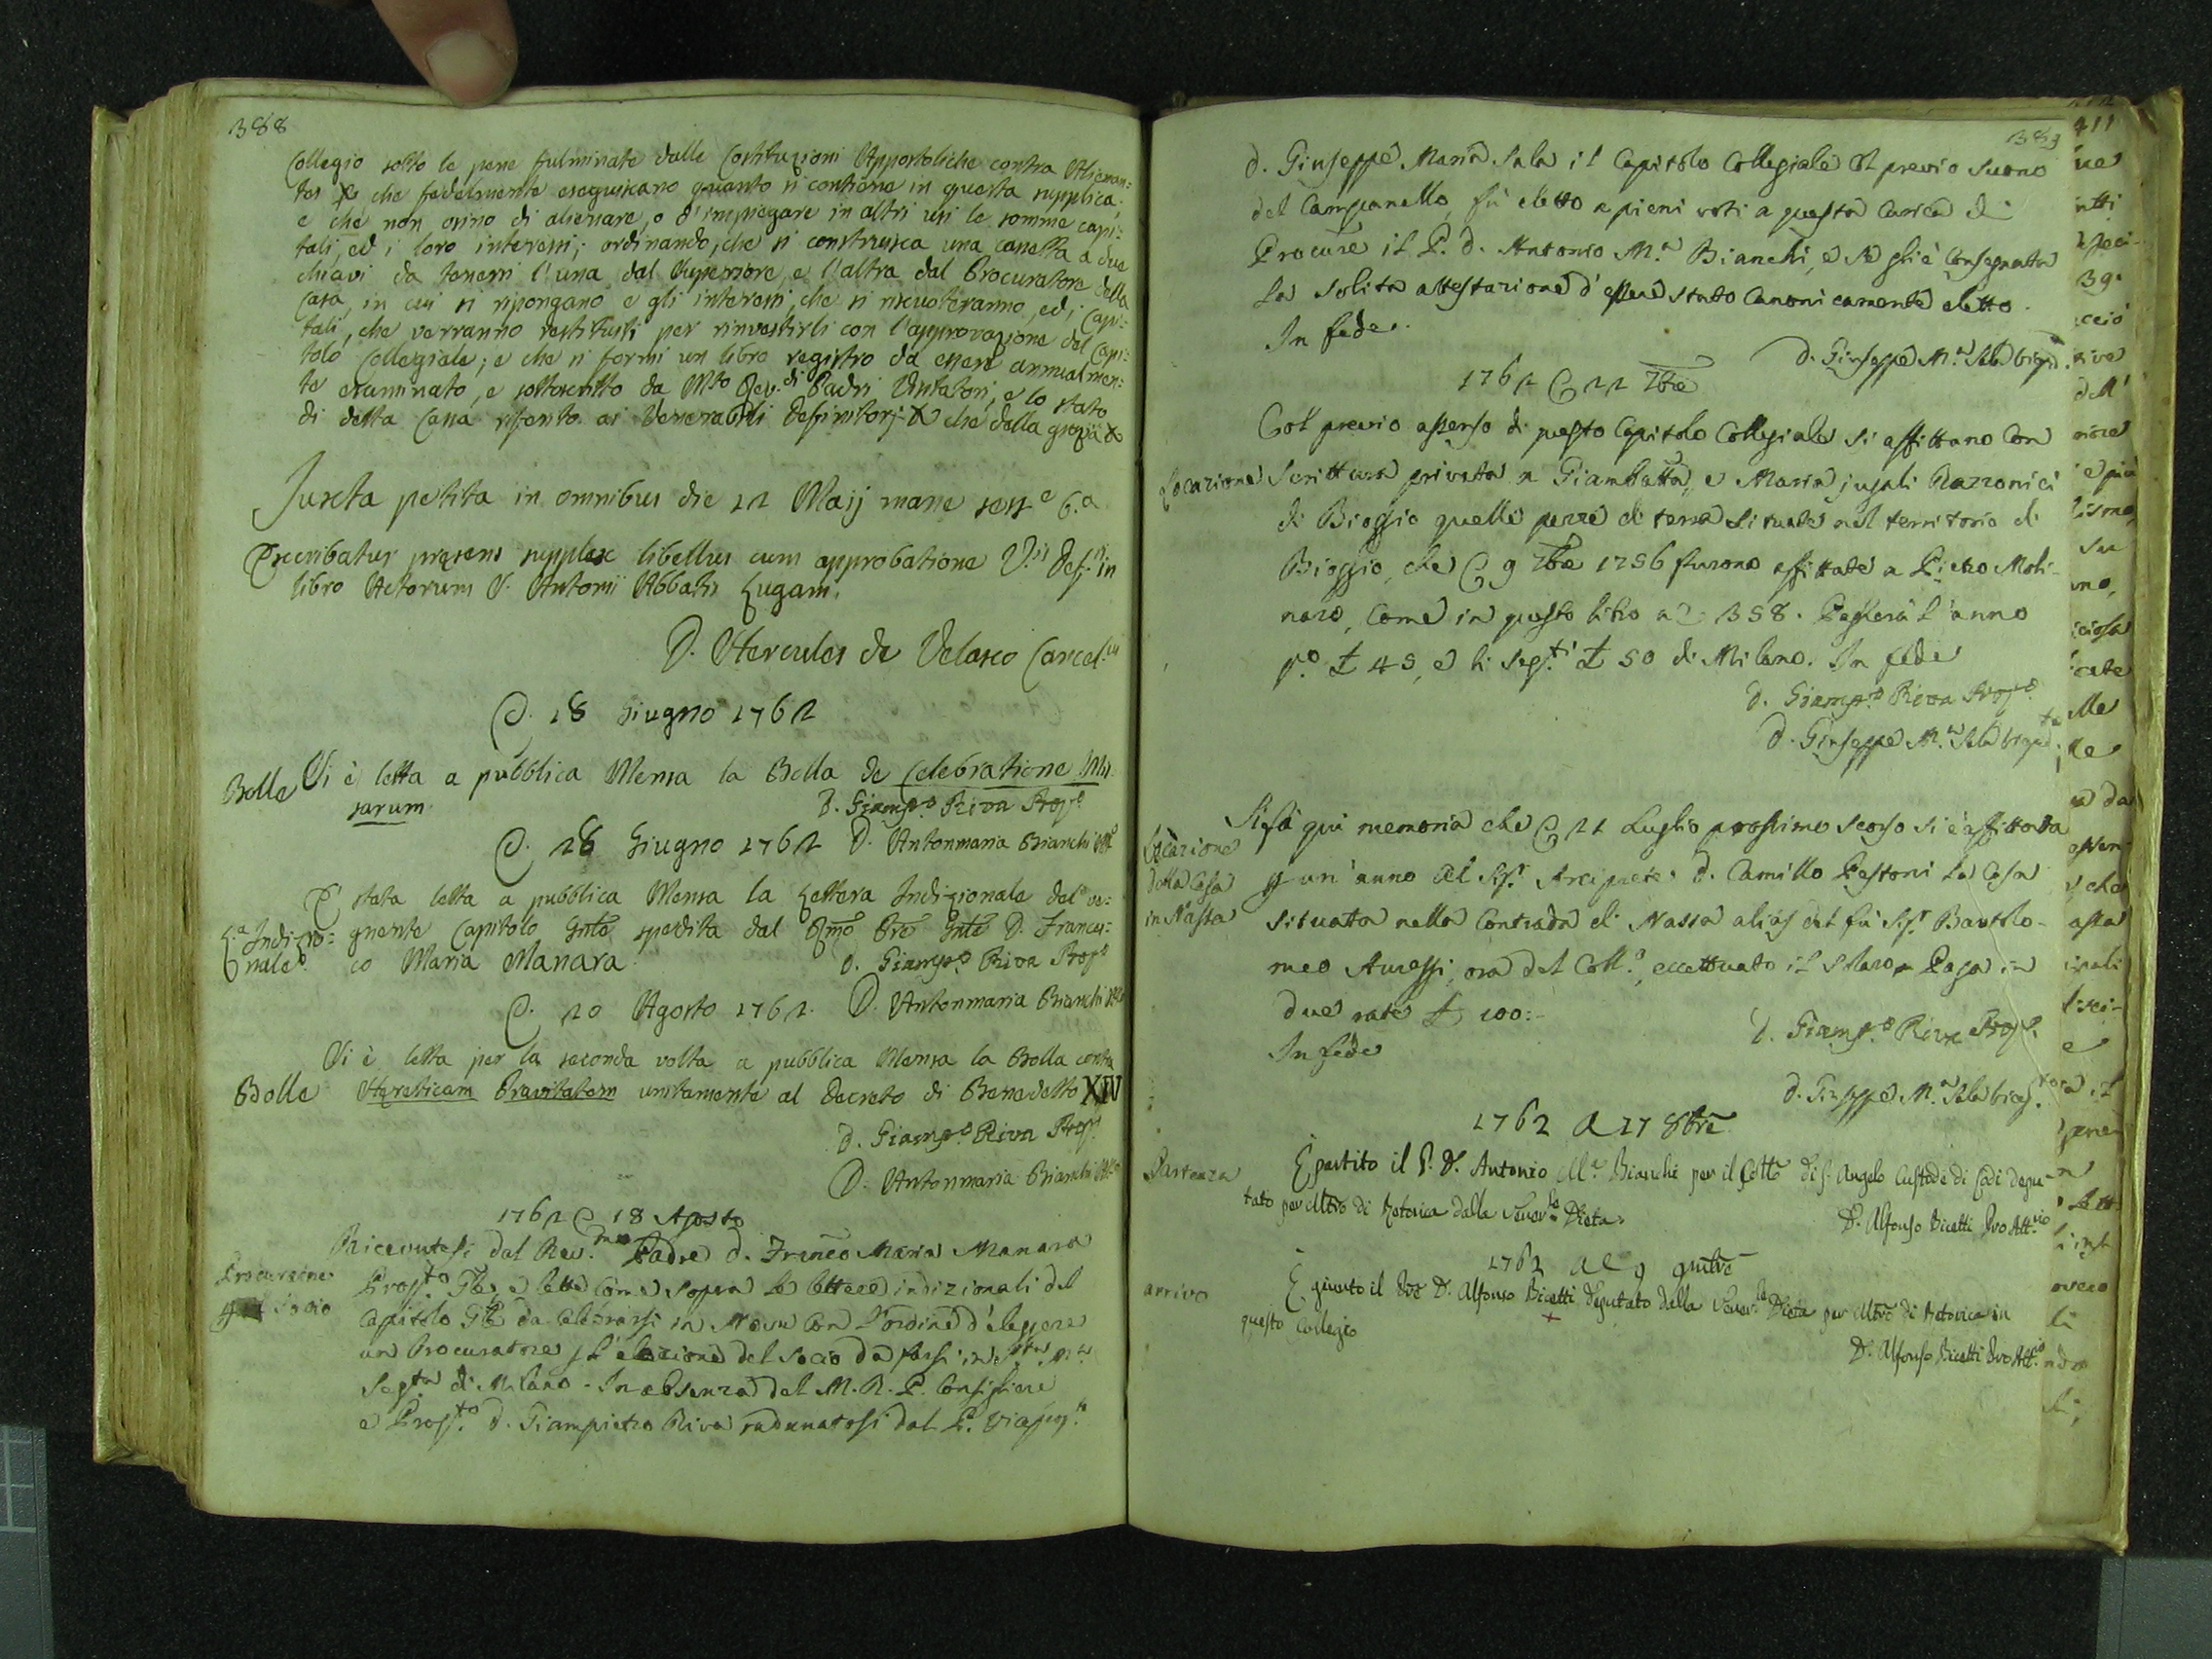 388
Collegio sotto le pene fulminate dalle Costituzioni Appostoliche contra Alienan:
tes &c che fedelmente eseguiscano quanto si contiene in questa supplica;
e che non osino di alienare, o d'impiegare in altri usi le somme capi:
tali, ed i loro interessi; ordinando, che si construisca una cassetta a due
chiavi da tenersi l'una dal Superiore, e l'altra dal Procuratore della
Casa, in cui si ripongano e gli interessi, che si riscuoteranno, ed i Capi:
tali, che verranno restituiti per rinvestirli con l'approvazione del Capi:
tolo Collegiale; e che si formi un libro registro da essere annualmen:
te esaminato, e sottoscritto da Mto Rev.di Padri Visitatori, e lo stato
di detta Cassa riferito ai Venerabili Definitorj &c che della grazia &c
Juxta petita in omnibus die 12 Maij mane sess.e 6.a
Describatur præsens supplex libellus cum approbatione V.is Def.ii in
libro Actorum S. Antonii Abbatis Lugani.
D. Hercules de Velasco Cancel.us
A. 18 Giugno 1762
Bolla Si è letta a pubblica Mensa la Bolla de Celebratione Mis
sarum. D. Giamp.o Riva Prop.o
A. 28 Giugno 1762 D. Antonmaria Bianchi Att.o
È stata letta a pubblica Mensa la Lettera Indizionale del ve:
L.a Indizio: gnente Capitolo Gnle spedita dal Rmo Pre Gnle D. Frances:
nale. co Maria Manara. D. Giamp.o Riva Prop.o
A. 20 Agosto 1762. D. Antonmaria Bianchi
Si è letta per la seconda volta a pubblica Mensa la Bolla contra
Bolla Hæreticam Pravitatem unitamente al Decreto di Benedetto XIV
D. Giamp.o Riva Prop.
D. Antonmaria Bianchi
1762 A 18 Agosto
Ricevutesi dal Rev.mo Padre d. Franco Maria Manara
Procurazione Prop.to Gle, e lette come sopra le lettere indizionali del
Socio Capitolo Gle da celebrarsi in con l'ordine d'eleggere
un Procuratore l'elezione del Socio da farsi in
di Milano. In absenza del M. R. P. Consigliere
e Prop.to d. Giampietro Riva radunatosi dal P.
389
d. Giuseppe Maria Sala il Capitolo Collegiale col previo suono
del Campanello, fù eletto a pieni voti a questa Carica di
Procure il P. d. Antonio M.a Bianchi, e se gli è consegnata
la solita attestazione d'essere stato canonicamente eletto.
In fede.
D. Giuseppe M.a Sala
1762 A 22 7bre
Col previo assenso di questo Capitolo Collegiale si affittano con
Locazione Scrittura privata a Giambatta, e Maria jugali Razzonici
di Bioggio quelle pezze di terra situate nel territorio di
Bioggio, che A 9 7bre 1756 furono affittate a Pietro Moli-
naro, come in questo libro a 358. Pagherà l'anno
p.o £ 45, e li seg.ti £ 50 di Milano. In fede
D. Giamp.o Riva Prop.o
D. Giuseppe M.a Sala
Si fà qui memoria che A 22 Luglio prossimo scorso si è affittata
Locazione un'anno al Sig.r Arciprete d. Camillo Pestoni la Casa
della Casa
in Nassa situata nella Contrada di Nassa alias del fu Sig.r Bartolo-
meo Auressi, ora del Coll.o, eccettuato il Paga in
due rate £ 100:-
In fede D. Giamp.o Riva Prop.
d. Giuseppe M.a Sala
1762 A 27 8bre
Partenza È partito il P. D. Antonio M.a Bianchi per il Colle di S. Angelo Custode di Lodi depu-
tato per Mtro di Retorica dalla Vener.le Dieta.
D. Alfonso Bicetti Pro Att.rio
1762 Al 9 9mbre
arrivo È giunto il D. Alfonso Bicetti deputato dalla Vener.le Dieta per Mtro di Retorica in
questo Collegio
D. Alfonso Bicetti Pro Att.rio
411